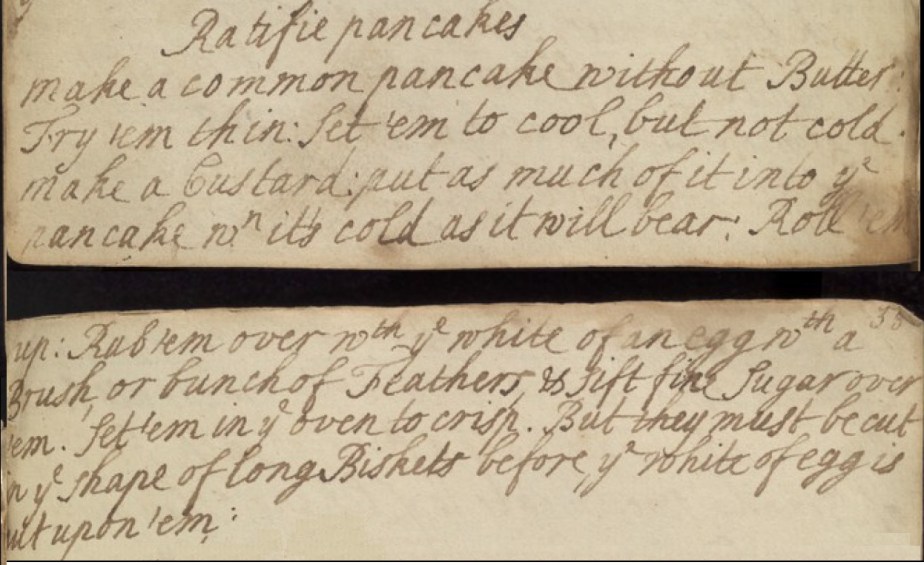 Ratifie pancakes
make a common pancake without Butter:
Fry 'em thin: Set 'em to cool, but not cold.
make a Custard: put as much of it into yᵉ
pancake wⁿ it's cold as it will bear: Roll 'em
up: Rub 'em over wᵗʰ yᵉ white of an egg wᵗʰ a
Brush, or bunch of Feathers, & sift fine Sugar over
'em. Set 'em in yᵉ oven to crisp. But they must be cut
in yᵉ shape of long Biskets before, yᵉ white of egg is
put upon 'em: